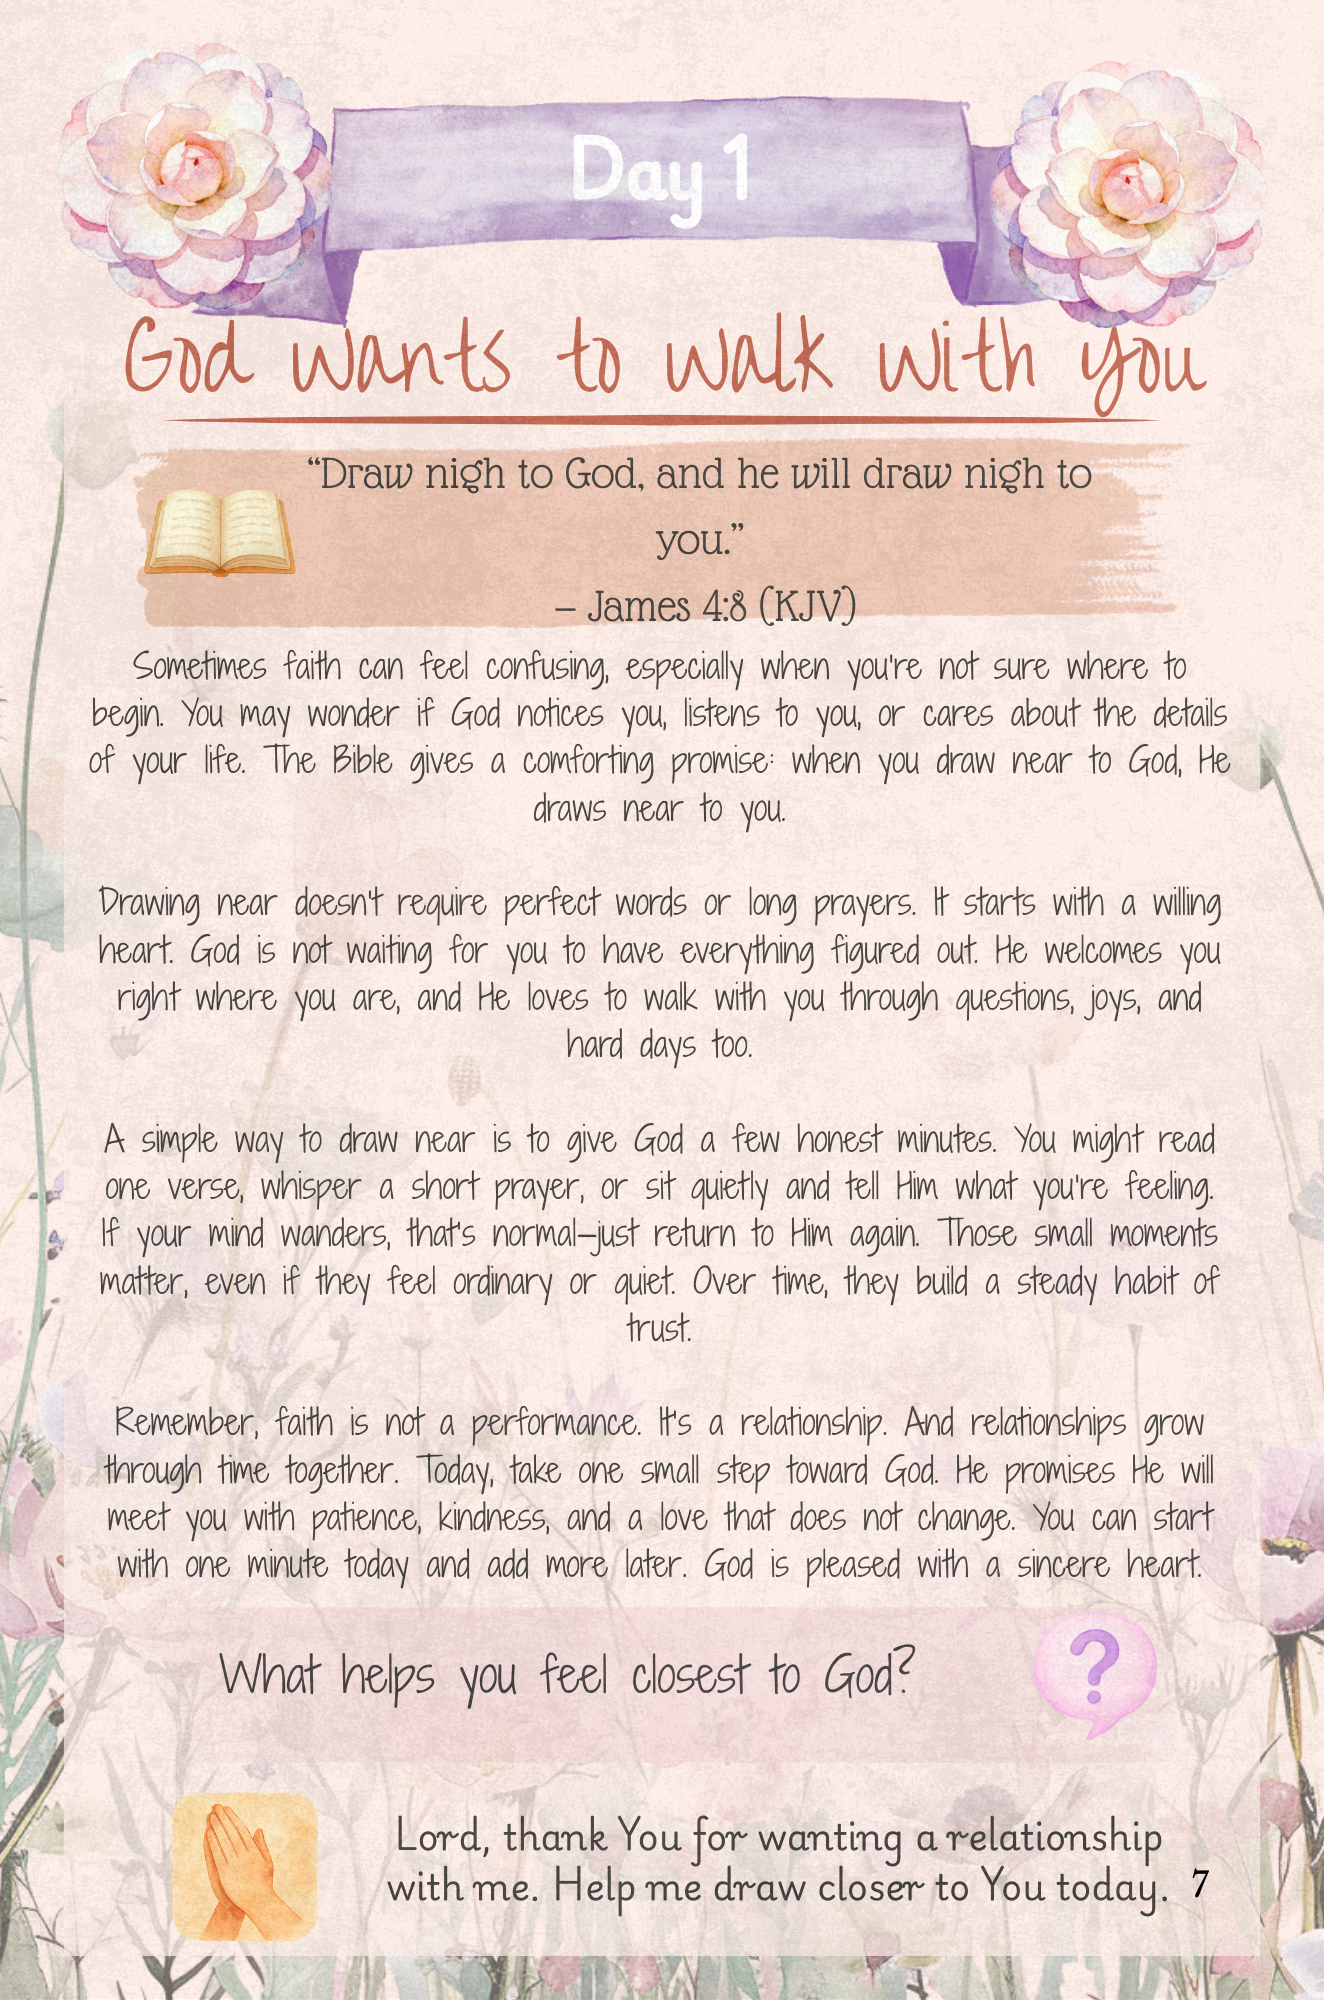 Day 1
God wants to walk with you
“Draw nigh to God, and he will draw nigh to
you.”
– James 4:8 (KJV)
Sometimes faith can feel confusing, especially when you're not sure where to
begin. You may wonder if God notices you, listens to you, or cares about the details
of your life. The Bible gives a comforting promise: when you draw near to God, He
draws near to you.
Drawing near doesn't require perfect words or long prayers. It starts with a willing
heart. God is not waiting for you to have everything figured out. He welcomes you
right where you are, and He loves to walk with you through questions, joys, and
hard days too.
A simple way to draw near is to give God a few honest minutes. You might read
one verse, whisper a short prayer, or sit quietly and tell Him what you're feeling.
If your mind wanders, that's normal—just return to Him again. Those small moments
matter, even if they feel ordinary or quiet. Over time, they build a steady habit of
trust.
Remember, faith is not a performance. It's a relationship. And relationships grow
through time together. Today, take one small step toward God. He promises He will
meet you with patience, kindness, and a love that does not change. You can start
with one minute today and add more later. God is pleased with a sincere heart.
What helps you feel closest to God?
?
Lord, thank You for wanting a relationship
with me. Help me draw closer to You today.
7